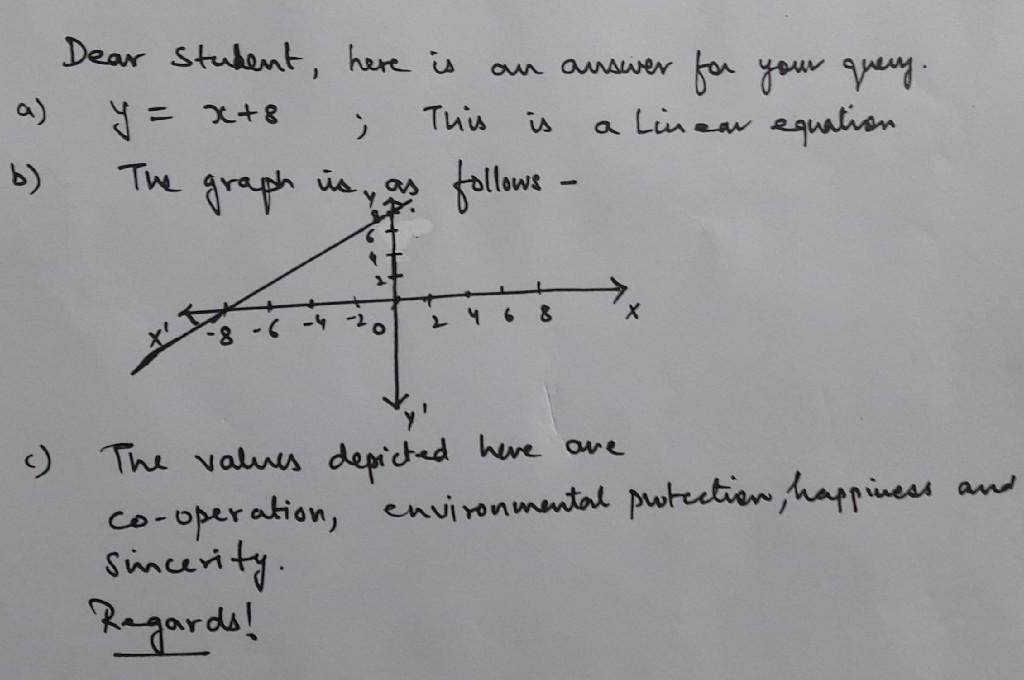 Dear Student, here is an answer for your query.
a) y = x+8 ; This is a Linear equation
b) The graph is as follows -
Y
8
6
4
2
X' -8 -6 -4 -2 0 2 4 6 8 X
Y'
c) The values depicted here are
co-operation, environmental protection, happiness and
sincerity.
Regards!